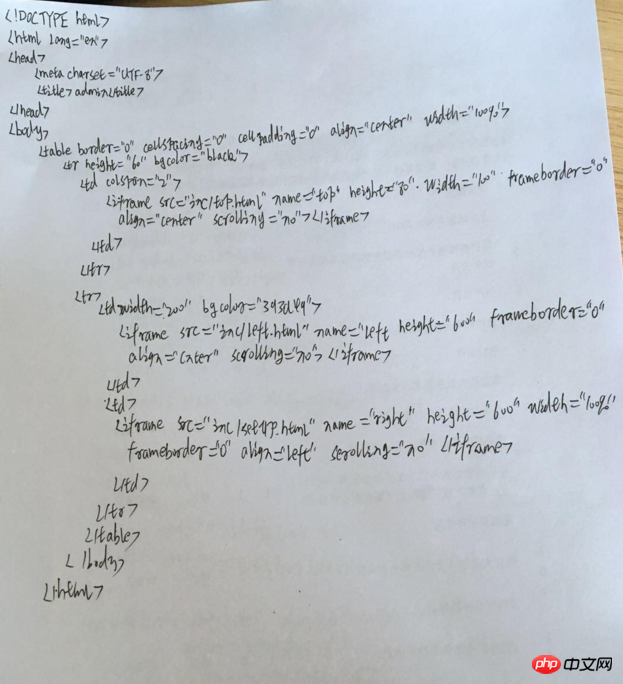 <!DOCTYPE html>
<html lang="en">
<head>
<meta charset="UTF-8">
<title> admin</title>
</head>
<body>
<table border="0" cellspacing="0" cellpadding="0" align="center" width="100%">
<tr height="60" bgcolor="black">
<td colspan="2">
<iframe src="inc/top.html" name="top" height="80" width="100" frameborder="0"
align="center" scrolling="no"></iframe>
</td>
</tr>
<tr>
<td width="200" bgcolor=
<iframe src="inc/left.html" name="left height="600" frameborder="0"
align="center" scrolling="no> </iframe>
</td>
<td>
<iframe src="inc/setup.html" name="right" height="600" width="100%"
frameborder="0" align="left" scrolling="no" </iframe>
</td>
</tr>
</table>
</body>
</html>
php中文网